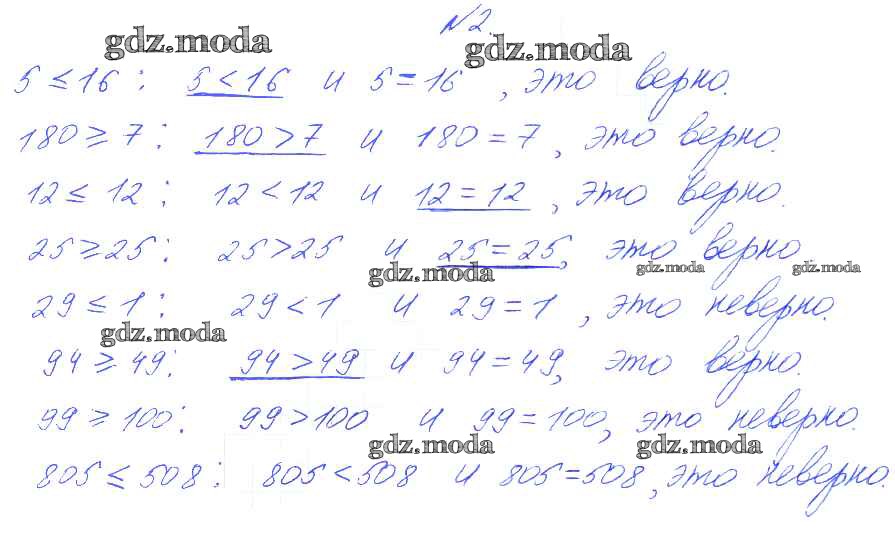 №2.
gdz.moda gdz.moda
5 ≤ 16 : 5 < 16 и 5 = 16 , это верно.
180 ≥ 7 : 180 > 7 и 180 = 7 , это верно.
12 ≤ 12 : 12 < 12 и 12 = 12 , это верно.
25 ≥ 25 : 25 > 25 и 25 = 25, это верно.
gdz.moda gdz.moda gdz.moda
29 ≤ 1 : 29 < 1 и 29 = 1 , это неверно.
gdz.moda
94 ≥ 49 : 94 > 49 и 94 = 49, это верно.
99 ≥ 100 : 99 > 100 и 99 = 100, это неверно.
gdz.moda gdz.moda
805 ≤ 508 : 805 < 508 и 805 = 508, это неверно.